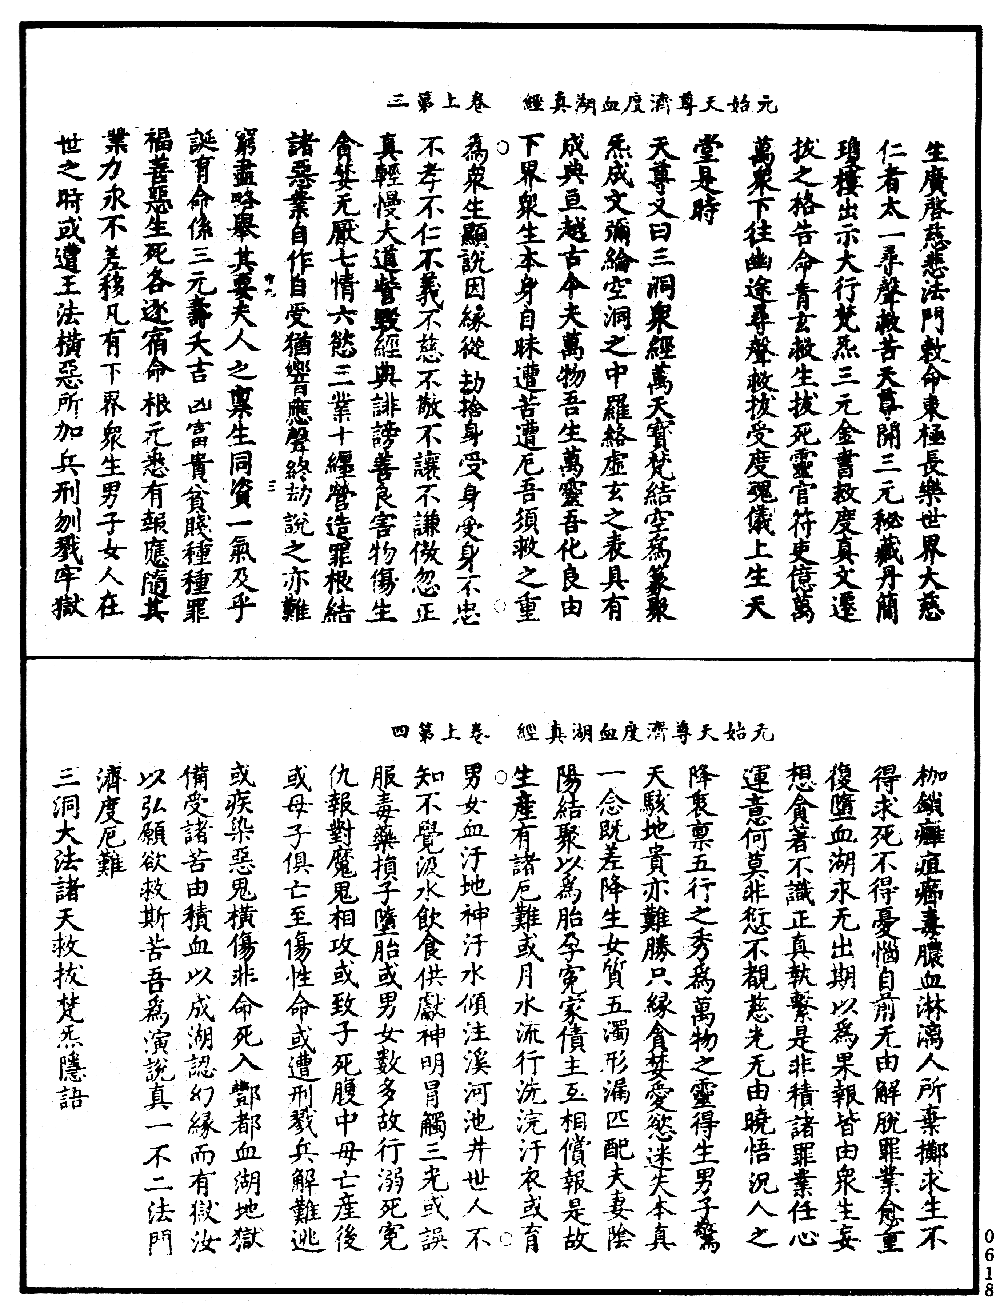 元始天尊濟度血湖真經　卷上第三
生廣啓慈悲法門敕命東極長樂世界大慈
仁者太一尋聲救苦天尊開三元秘藏丹簡
瓊樓出示大行梵炁三元金書救度真文遷
拔之格告命青玄救生拔死靈官符吏億萬
萬衆下往幽途尋聲救拔受度魂儀上生天
堂是時
天尊又曰三洞衆經萬天寶梵結空爲篆聚
炁成文彌綸空洞之中羅絡虛玄之表具有
成典亘越古今夫萬物吾生萬靈吾化良由
下界衆生本身自昧遭苦遭厄吾須救之重
爲衆生顯說因緣從劫捨身受身受身不忠
不孝不仁不義不慈不敬不讓不謙傲忽正
真輕慢大道訾毀經典誹謗善良害物傷生
貪婪无厭七情六慾三業十纏營造罪根結
諸惡業自作自受猶響應聲終劫說之亦難
窮盡略舉其要夫人之稟生同資一氣及乎
誕有命係三元壽夭吉凶富貴貧賤種種罪
福善惡生死各逐宿命根元悉有報應隨其
業力永不差移凡有下界衆生男子女人在
世之時或遭王法橫惡所加兵刑刎戮牢獄
元始天尊濟度血湖真經　卷上第四
枷鎖癱疽癌毒膿血淋漓人所棄擲求生不
得求死不得憂惱自前无由解脫罪業愈重
復墮血湖永无出期以爲果報皆由衆生妄
想貪著不識正真執繫是非積諸罪業任心
運意何莫非愆不覩慈光无由曉悟況人之
降衷稟五行之秀爲萬物之靈得生男子驚
天駭地貴亦難勝只緣貪婪愛慾迷失本真
一念既差降生女質五濁形漏匹配夫妻陰
陽結聚以爲胎孕寃家債主互相償報是故
生產有諸厄難或月水流行洗浣汙衣或育
男女血汙地神汙水傾注溪河池井世人不
知不覺汲水飲食供獻神明冒觸三光或誤
服毒藥損子墮胎或男女數多故行溺死寃
仇報對魔鬼相攻或致子死腹中母亡產後
或母子俱亡至傷性命或遭刑戮兵解難逃
或疾染惡鬼橫傷非命死入酆都血湖地獄
備受諸苦由積血以成湖認幻緣而有獄汝
以弘願欲救斯苦吾爲演說真一不二法門
濟度厄難
三洞大法諸天救拔梵炁隱語
0618